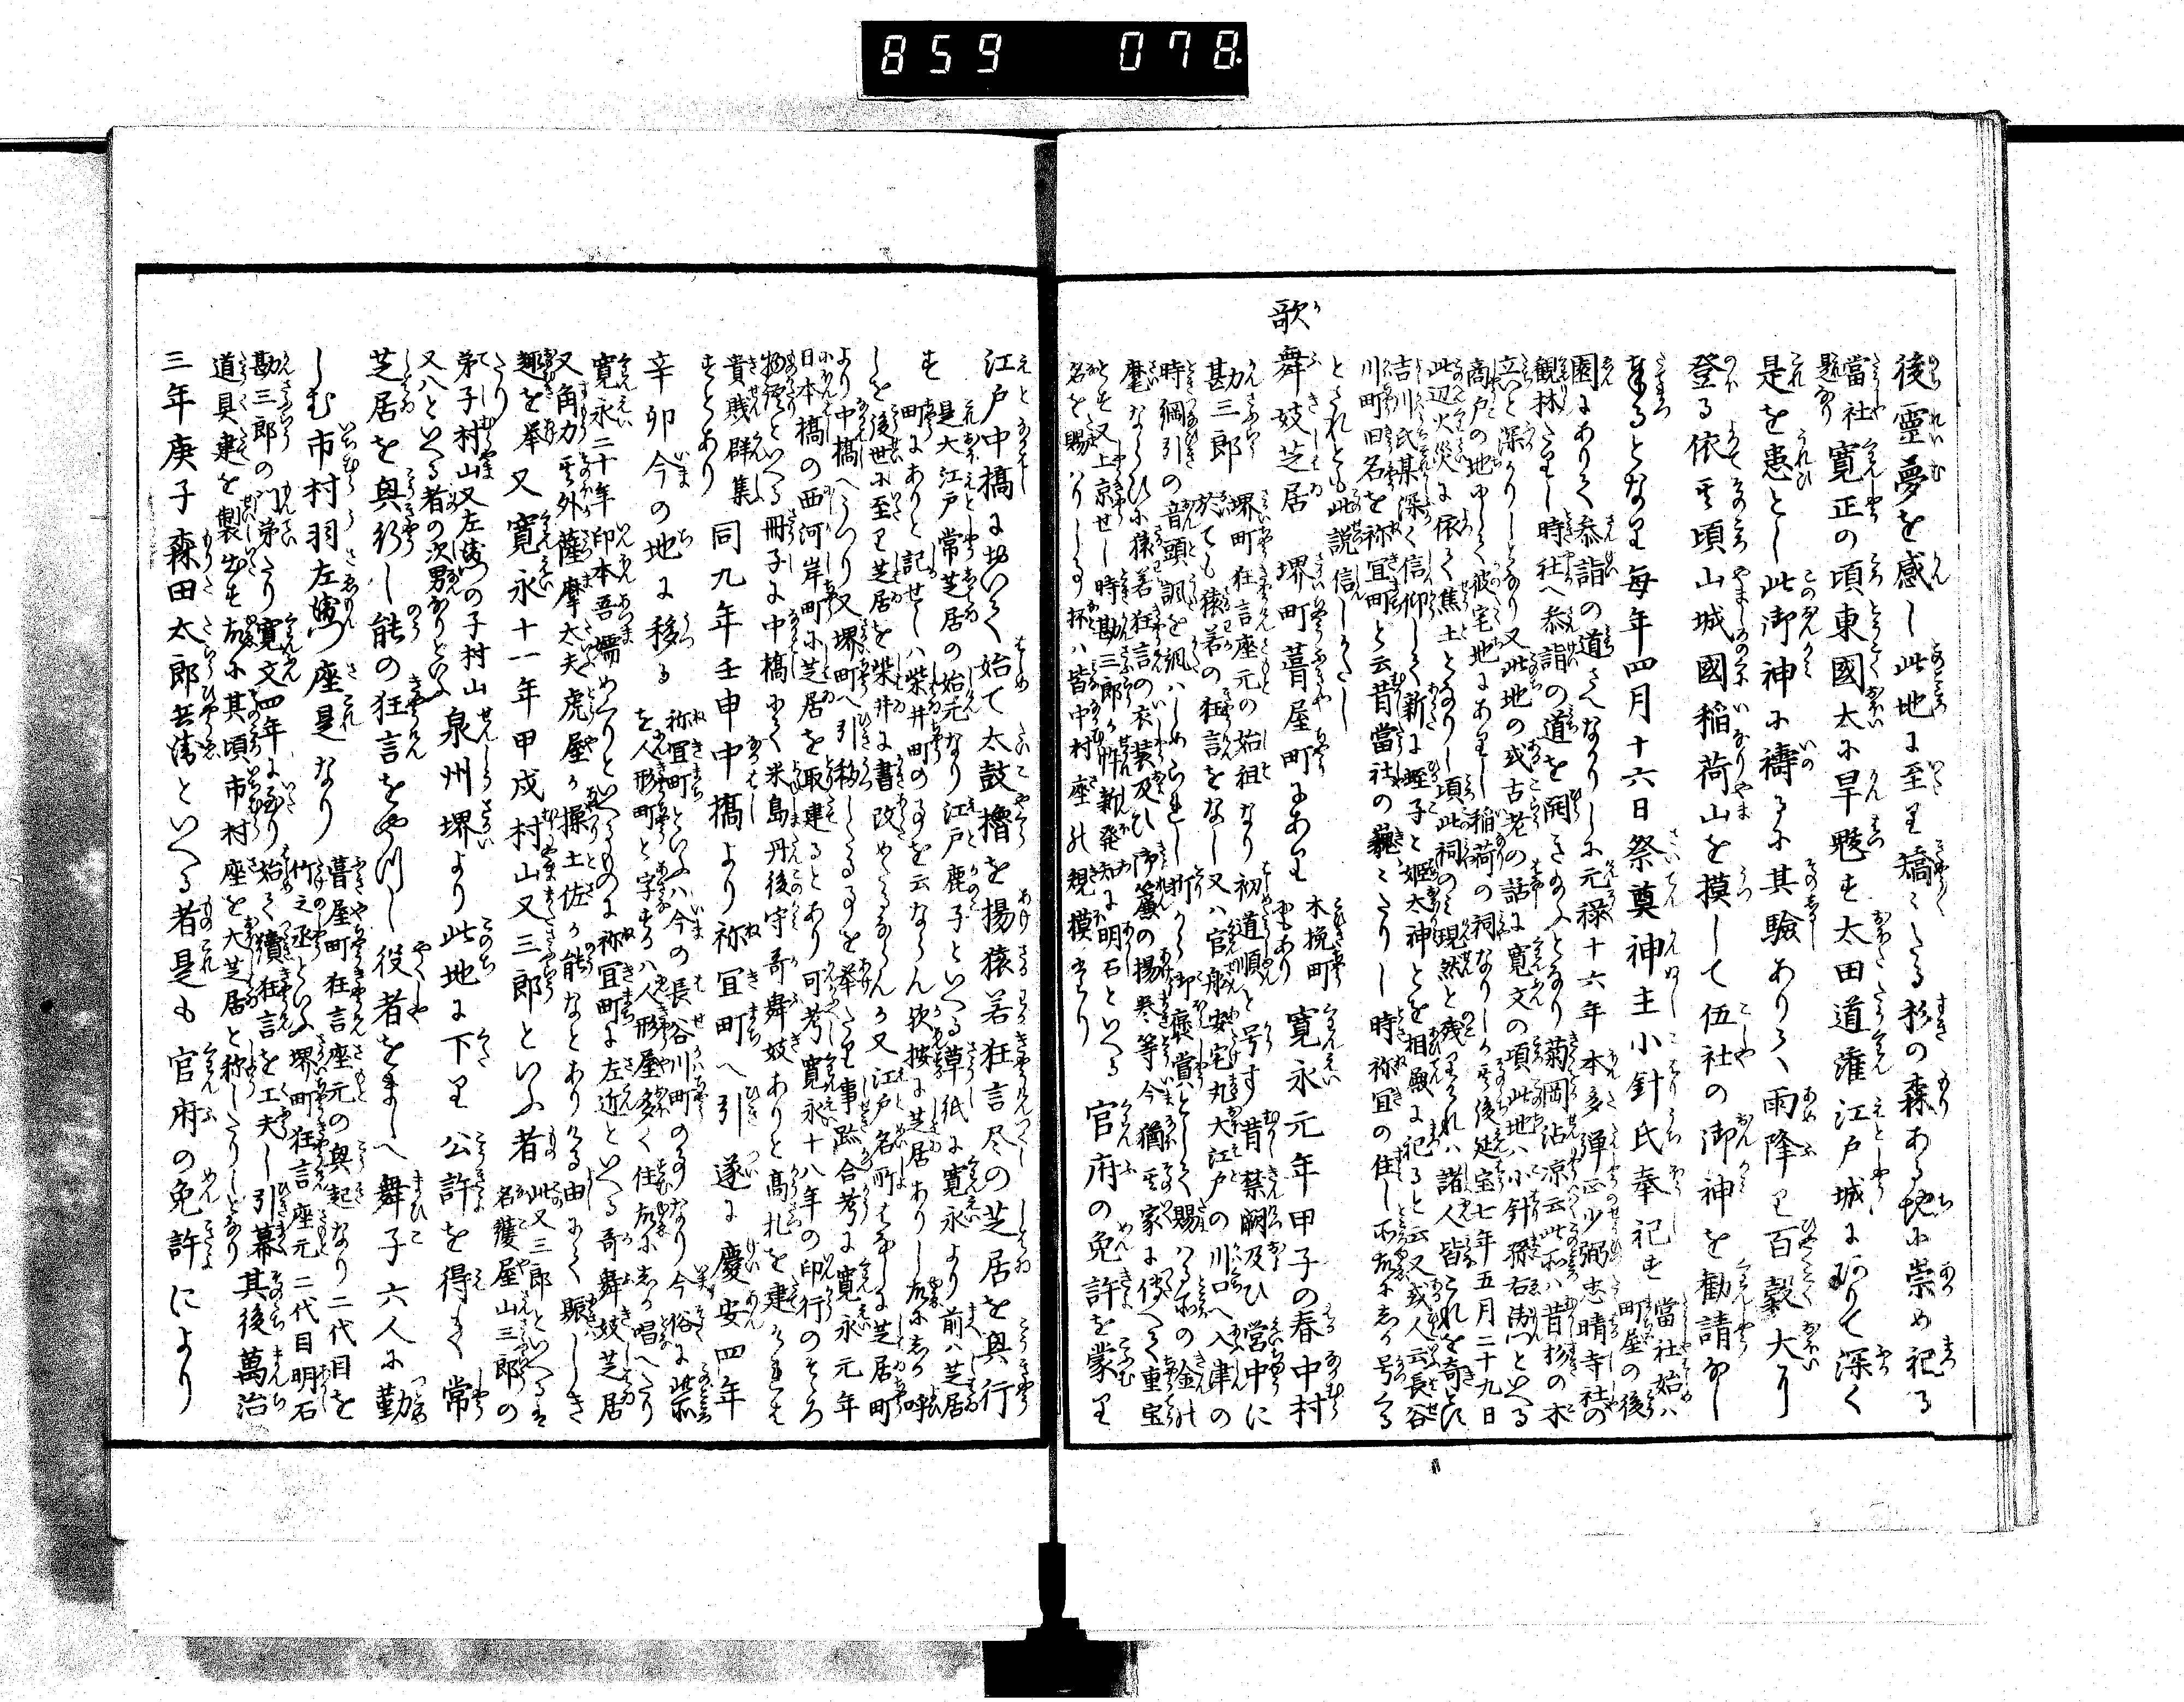 859 078
後靈夢を感し此地に至り矯々たる杉の森ある地に崇め祀る
當社寛正の頃東國太に旱魃す太田道灌江戸城にありて深く
是を患とし此御神に禱るに其驗ありて雨降り百穀大に
登る依て其頃山城國稲荷山を摸して伍社の御神を勧請なし
奉るとなり毎年四月十六日祭奠神主小針氏奉祀す 當社始ハ町屋の後
園にありて参詣の道さへなかりしに元禄十六年本多弾正少弼忠晴寺社の
観林たりし時社へ参詣の道を開き 菊岡沾凉云此所ハ昔杉の木
立いと深かりしとなり又此地の或古老の話に寛文の頃此地ハ小針孫右衛門といへる
商戸の地にして彼宅地にありし稲荷の祠なりしか其後延宝七年五月二十九日
此辺火災に依て焦土となりし頃此祠のミ現然と残りけれハ諸人皆これを奇とす
吉川氏某深く信仰して新に蛭子と姫太神とを相殿に祀ると云又或人云長谷
川町旧名を祢宜町と云昔當社の たりし時祢宜の住し所故にしか号くる
とされとも此説信しかたし
歌舞妓芝居 堺町葺屋町にあり 木挽町にもあり 寛永元年甲子の春中村
勘三郎 堺町狂言座元の始祖なり初道順と号す昔禁闕及ひ営中に
於ても猿若の狂言をなし又ハ官舩安宅丸大江戸の川口へ入津の
時綱引の音頭諷を諷ハしめられし折から御褒賞として賜ハる所の金の
麾ならひに猿若狂言の衣装及ひ御簾の揚巻等今猶其家に傳へて重宝
とす又上京せし時勘三郎か忰新発知に明石といへる
名を賜ハりしる 抔ハ皆中村座の規摸なり 官府の免許を蒙り
江戸中橋に於いて始て太鼓櫓を揚猿若狂言尽の芝居を興行
す 是大江戸常芝居の始元なり江戸鹿子といへる草紙に寛永より前ハ芝居
町にありと記せしハ柴井町の事を云ならん欤按に芝居ありし故にしか呼
しを後世に至り芝居を柴井に書改めたるならんか又江戸名所はなしに芝居町
より中橋へうつり又堺町へ引移したる事を挙たり事跡合考に寛永元年
日本橋の西河岸町に芝居を取建るとあり可考寛永十八年の印行のそゝろ
物語といへる冊子に中橋にて米島丹後守哥舞妓ありと髙札を建けれハ
貴賎群集すとあり 同九年壬申中橋より祢宜町へ引遂に慶安四年
辛卯今の地に移る 祢宜町といふハ今の長谷川町の事なり今俗に此所
を人形町と字するハ人形屋多く住故にしか唱へたり
寛永二十年印本吾嬬めくりといへるものに祢宜町に左近といへる哥舞妓芝居
又角力其外薩摩太夫虎屋か操土佐か能なとありける由にて賑ハしき
趣を挙たり 又寛永十一年甲戌村山又三郎といふ者 此又三郎といへるは名護屋山三郎の
弟子村山又左衛門の子村山又八といへる者の次男なりといふ 泉州堺より此地に下り 公許を得て常
芝居を興行し能の狂言をやつし役者をましへ舞子六人に勤
しむ市村羽左衛門座是なり 葺屋町狂言座元の興起なり二代目を竹之丞といふ堺町狂言座元二代目明石
勘三郎の門弟たり寛文四年に至り始て續狂言を工夫し引幕
道具建を製出す故に其頃市村座を大芝居と称したりしとなり 其後萬治
三年庚子森田太郎兵衛といへる者是も 官府の免許により